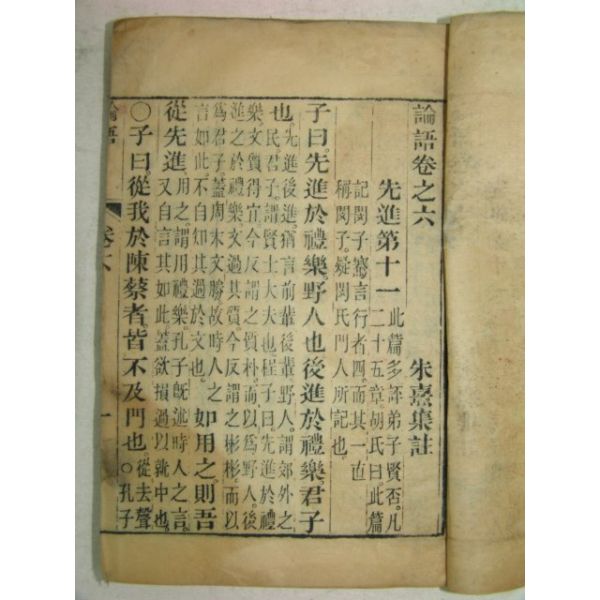 論語卷之六
朱熹集註
先進第十一
此篇多評弟子賢否。凡
二十五章胡氏曰。此篇
記閔子騫言行者四而其一直
稱閔子。疑閔氏門人所記也。
子曰。先進於禮樂。野人也後進於禮樂。君子
也。
先進後進。猶言前輩後輩野人。謂郊外之
民。君子。謂賢士大夫也。程子曰。先進於禮
樂文質得宜今反謂之質朴。而以爲野人。後
進之於禮樂。文過其質今反謂之彬彬。而以
爲君子蓋周末文勝故時人之
言如此。不自知其過於文也。
如用之。則吾
從先進。
用之。謂用禮樂。孔子旣述時人之言。
又自言其如此。蓋欲損過以就中也。
○子曰。從我於陳蔡者。皆不及門也。
從去聲
○孔子
論語
卷六
一